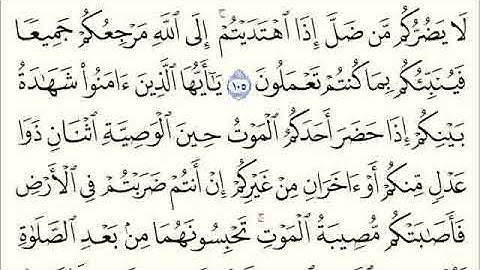 لَا يَضُرُّكُم مَّن ضَلَّ إِذَا ٱهْتَدَيْتُمْ ۚ إِلَى ٱللَّهِ مَرْجِعُكُمْ جَمِيعًا
فَيُنَبِّئُكُم بِمَا كُنتُمْ تَعْمَلُونَ ١٠٥ يَٰٓأَيُّهَا ٱلَّذِينَ ءَامَنُوا۟ شَهَٰدَةُ
بَيْنِكُمْ إِذَا حَضَرَ أَحَدَكُمُ ٱلْمَوْتُ حِينَ ٱلْوَصِيَّةِ ٱثْنَانِ ذَوَا
عَدْلٍ مِّنكُمْ أَوْ ءَاخَرَانِ مِنْ غَيْرِكُمْ إِنْ أَنتُمْ ضَرَبْتُمْ فِى ٱلْأَرْضِ
فَأَصَٰبَتْكُم مُّصِيبَةُ ٱلْمَوْتِ ۚ تَحْبِسُونَهُمَا مِنۢ بَعْدِ ٱلصَّلَوٰةِ